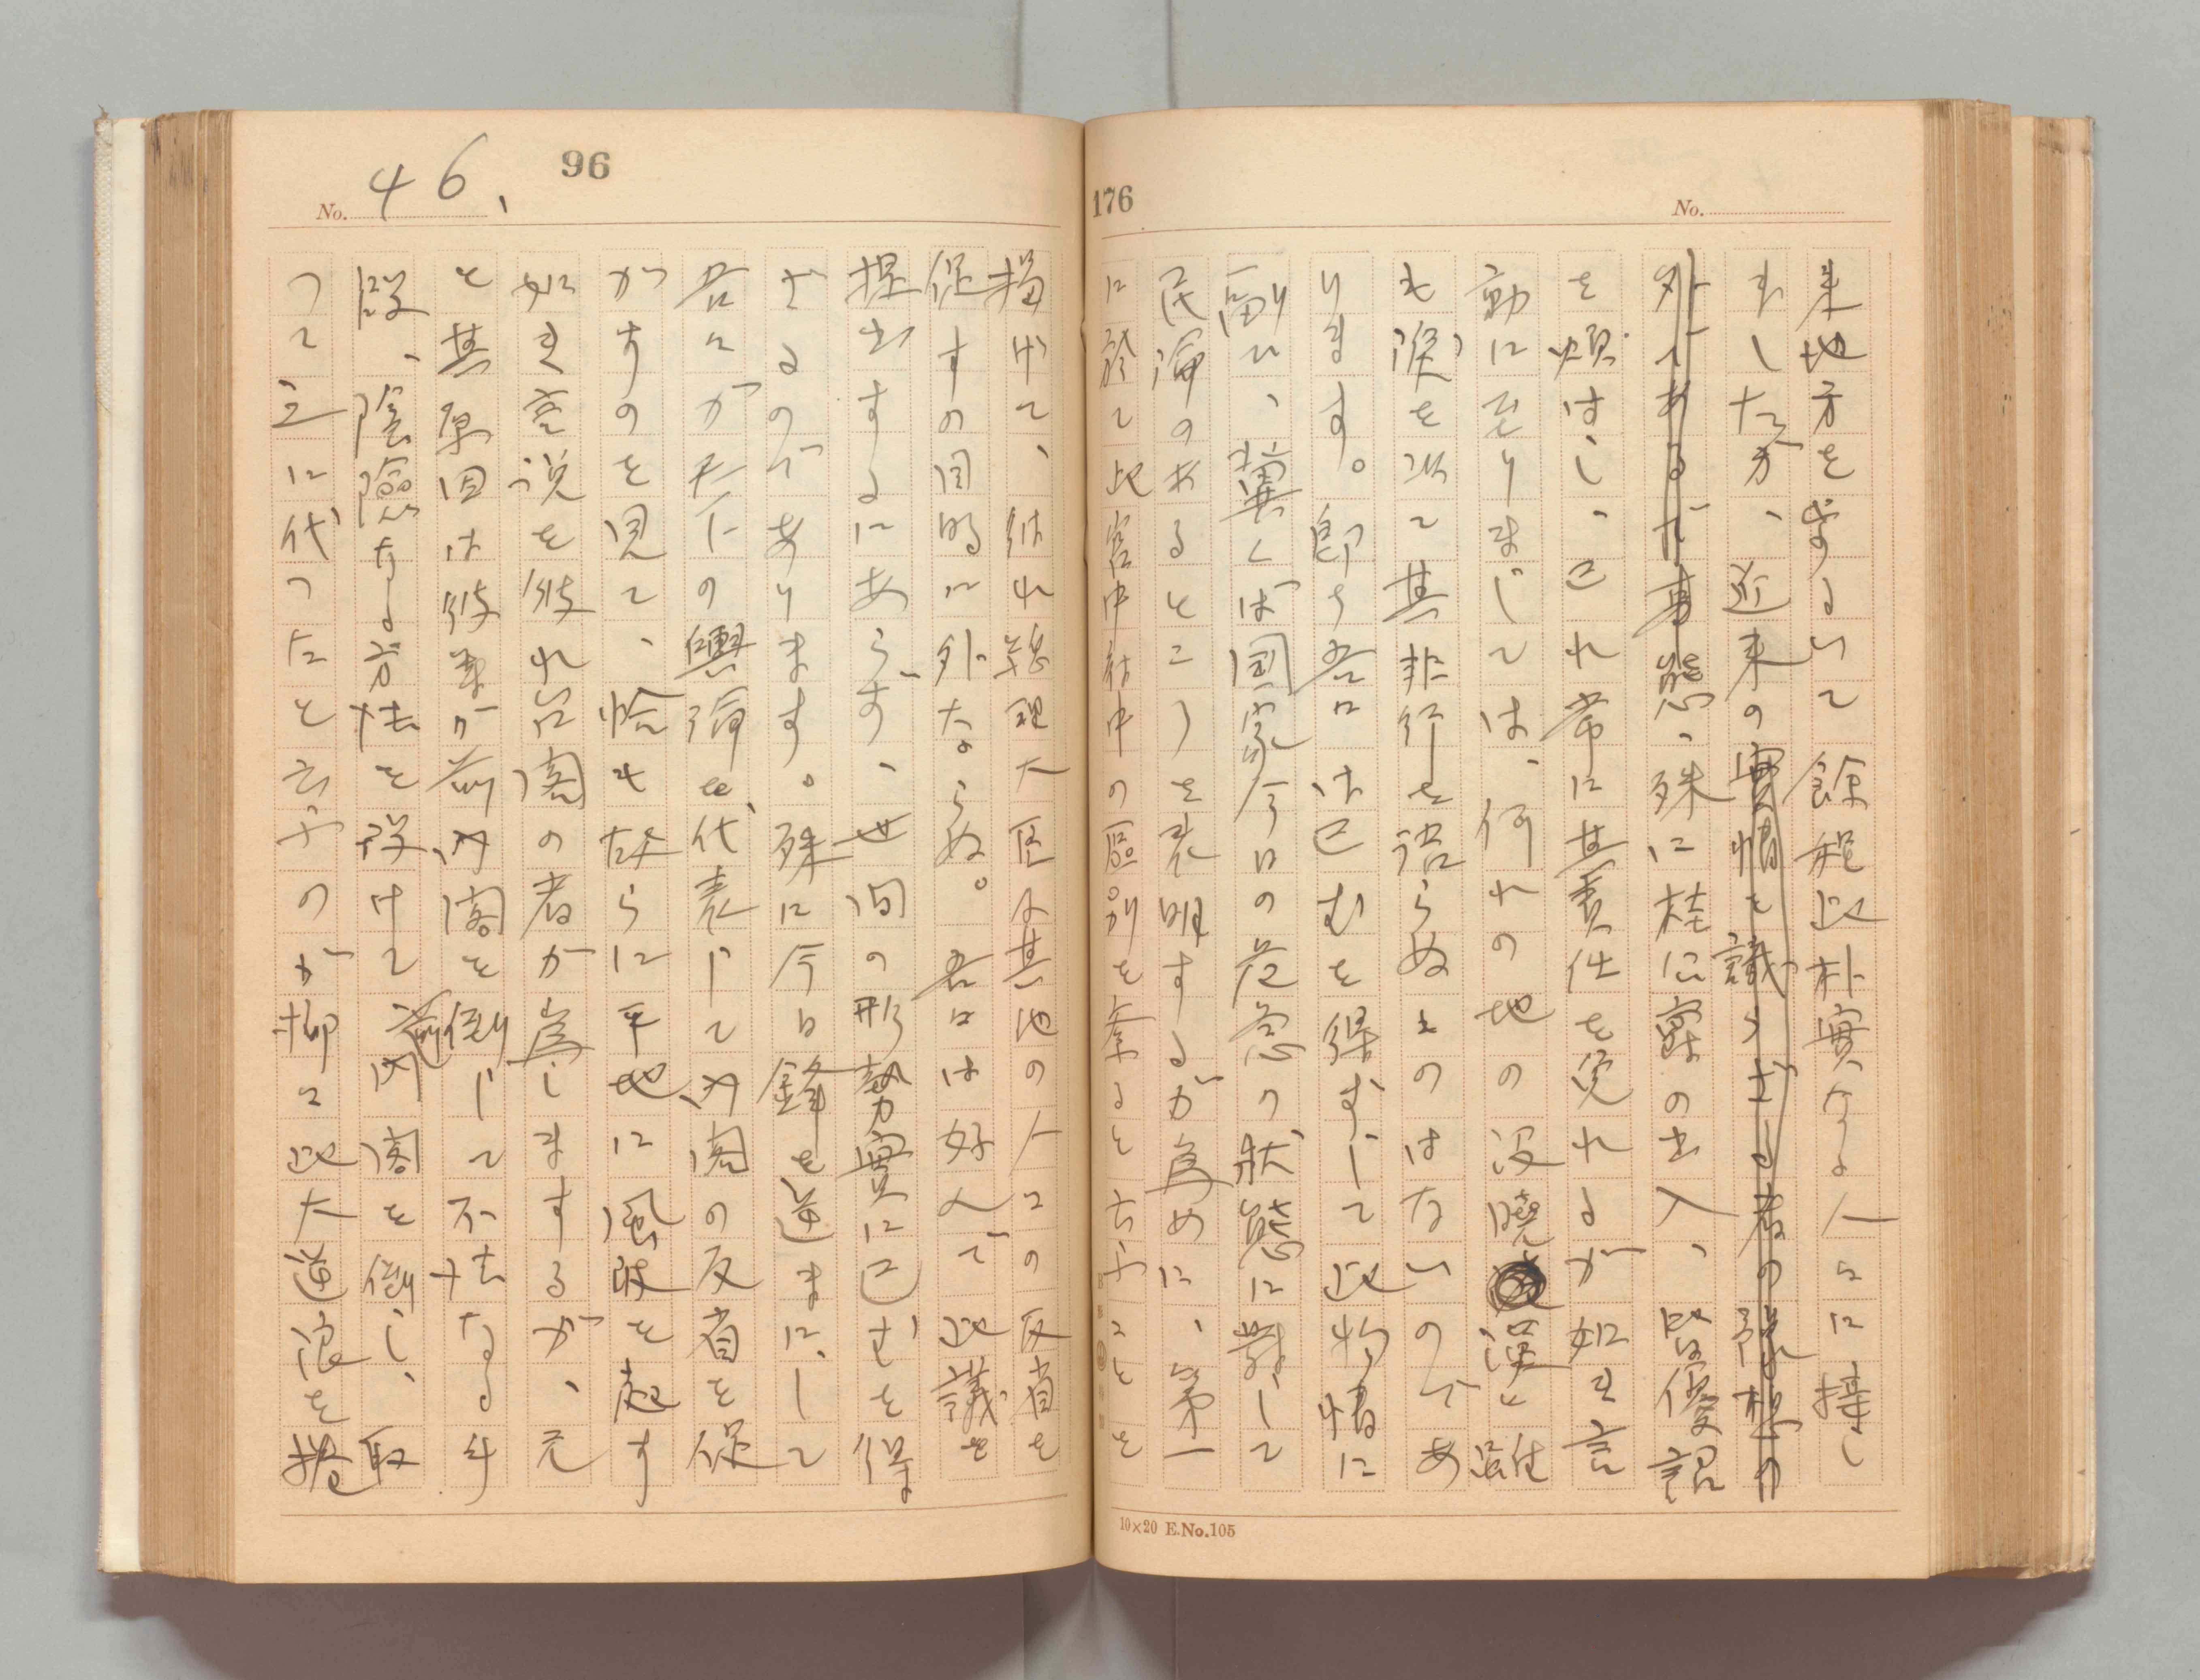 176
No.
来地方を歩るいて餘程此朴實なる人々に接し
ましたが、近来の實情を識らざる者の豫想の
外であるが事態、殊に桂公爵の出入、皆優詔
を煩はし、己れ常に其責任を免れるが如き言
動に至りましては、何れの地の没曉漢と雖
も涙を以て其非行を語らぬものはないのであ
ります。即ち吾々は已むを得ずして此物情に
副ひ、冀くば国家今日の危急の状態に對して
民論のあるところを表明するが為めに、第一
に於て此宮中府中の區別を紊ると云ふことを
10×20 E.No.105
96
No. 46、
揚げて、彼れ総理大臣及其他の人々の反省を
促すの目的に外ならぬ。吾々は好んで此議を
提出するにあらず、世間の形勢實に已むを得
ざるのであります。殊に今日鋒を逆まにして
吾々が天下の輿論を代表して内閣の反省を促
がすのを見て、恰も故らに平地に風波を起す
如き妄説を彼れ官閣の者が為しまするが、元
と其原因は彼輩が前内閣を倒して不法なる手
段、陰險なる方法を設けて前内閣を倒し、取
って之に代ったと云ふのが抑々此大逆浪を捲